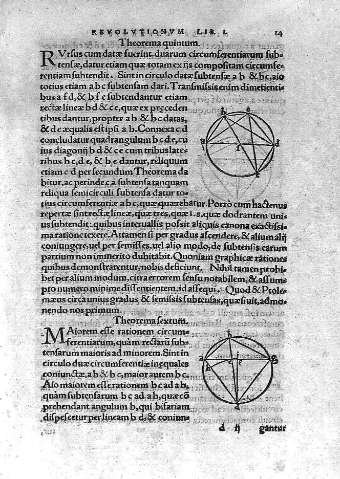 REVOLUTIONUM LIB. I. 14
Theorema quintum.
RVrsus cum datæ fuerint duarum circumferentiarum sub-
tensæ, datur etiam quæ totam ex ijs compositam circumfe-
rentiam subtendit. Sint in circulo datæ subtensæ a b & b c, aio
totius etiam a b c subtensam dari. Transmissis enim dimetienti
bus a f d, & b f e subtendantur etiam
rectæ lineæ b d & c e, quæ ex præceden
tibus dantur, propter a b & b c datas,
& d e æqualis est ipsi a b. Connexa c d
concludatur quadrangulum b c d e, cu
ius diagonij b d & c e cum tribus late
ribus b c, d e, & b e dantur, reliquum
etiam c d per secundum Theorema da
bitur, ac perinde c a subtensa tanquam
reliqua semicirculi subtensa datur to-
tius circumferentiæ a b c, quæ quærebatur. Porro cum hactenus
repertæ sint rectæ lineæ, quæ tres, quæ 1. s. quæ dodrantem uni
us subtendit: quibus interuallis possit aliquis canona exactissi
ma ratione texere. Attamen si per gradus ascendere, & alium alij
coniungere, uel per semisses, uel alio modo, de subtensis earum
partium non immerito dubitabit. Quoniam graphicæ rationes
quibus demonstrarentur, nobis deficiunt. Nihil tamen prohi
bet per alium modum, citra errorem sensu notabilem, & assum
pto numero minime dissentientem, id assequi. Quod & Ptole
mæus circa unius gradus & semissis subtensas, quæsiuit, admo-
nendo nos primum.
Theorema sextum.
MAiorem esse rationem circum-
ferentiarum, quàm rectarū sub-
tensarum maioris ad minorem. Sint in
circulo duæ circumferentiæ inæquales
coniunctæ, a b & b c, maior autem b c.
Aio maiorem esse rationem b c ad a b,
quàm subtensarum b c ad a b, quæ cō
prehendant angulum b, qui bifariam
dispescatur per lineam b d, & coniun-
gantur